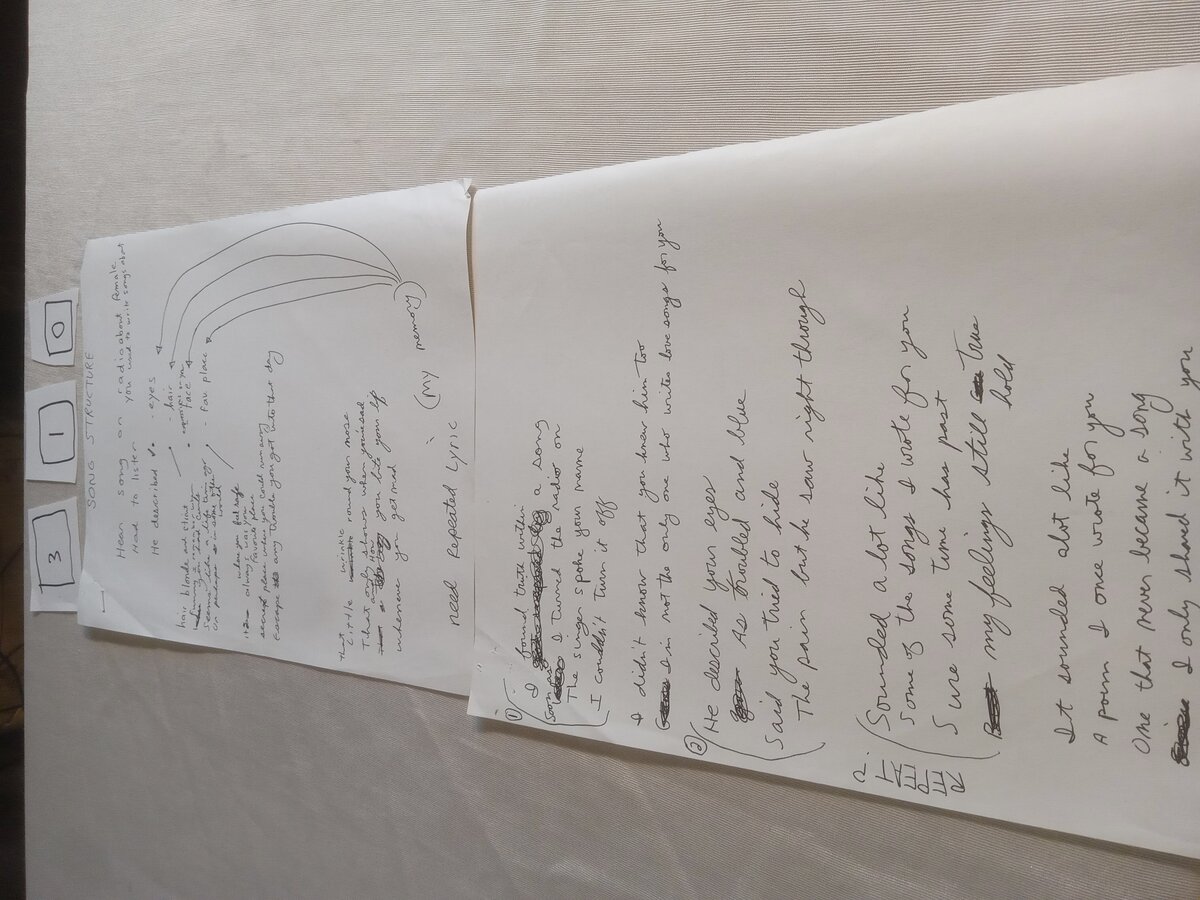 3
1
0
SONG STRUCTURE
Hear song on radio about female
Had to listen you used to write songs about
He described - eyes
- hair
- face
- fav place
hair blonde and strait
where you felt safe
It always was your favorite place
secret place where you could run away
Escape any trouble you got into that day
That little wrinkle round your nose
That only shows when you're sad
how you bite your lip
whenever you get mad
need Repeated Lyric
(my memory)
① I found truth within a song
Soon as I turned the radio on
The singer spoke your name
I couldn't turn it off
I didn't know that you knew him too
I'm not the only one who writes love songs for you
② He descibed your eyes
As troubled and blue
Said you tried to hide
The pain but he saw right through
Sounded a lot like
some of the songs I wrote for you
Sure some time has past
my feelings still hold true
It sounded alot like
A poem I once wrote for you
One that never became a song
I only shared it with you